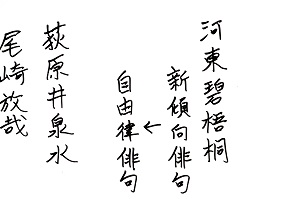 河東碧梧桐
新傾向俳句
↓
自由律俳句
荻原井泉水
尾崎放哉